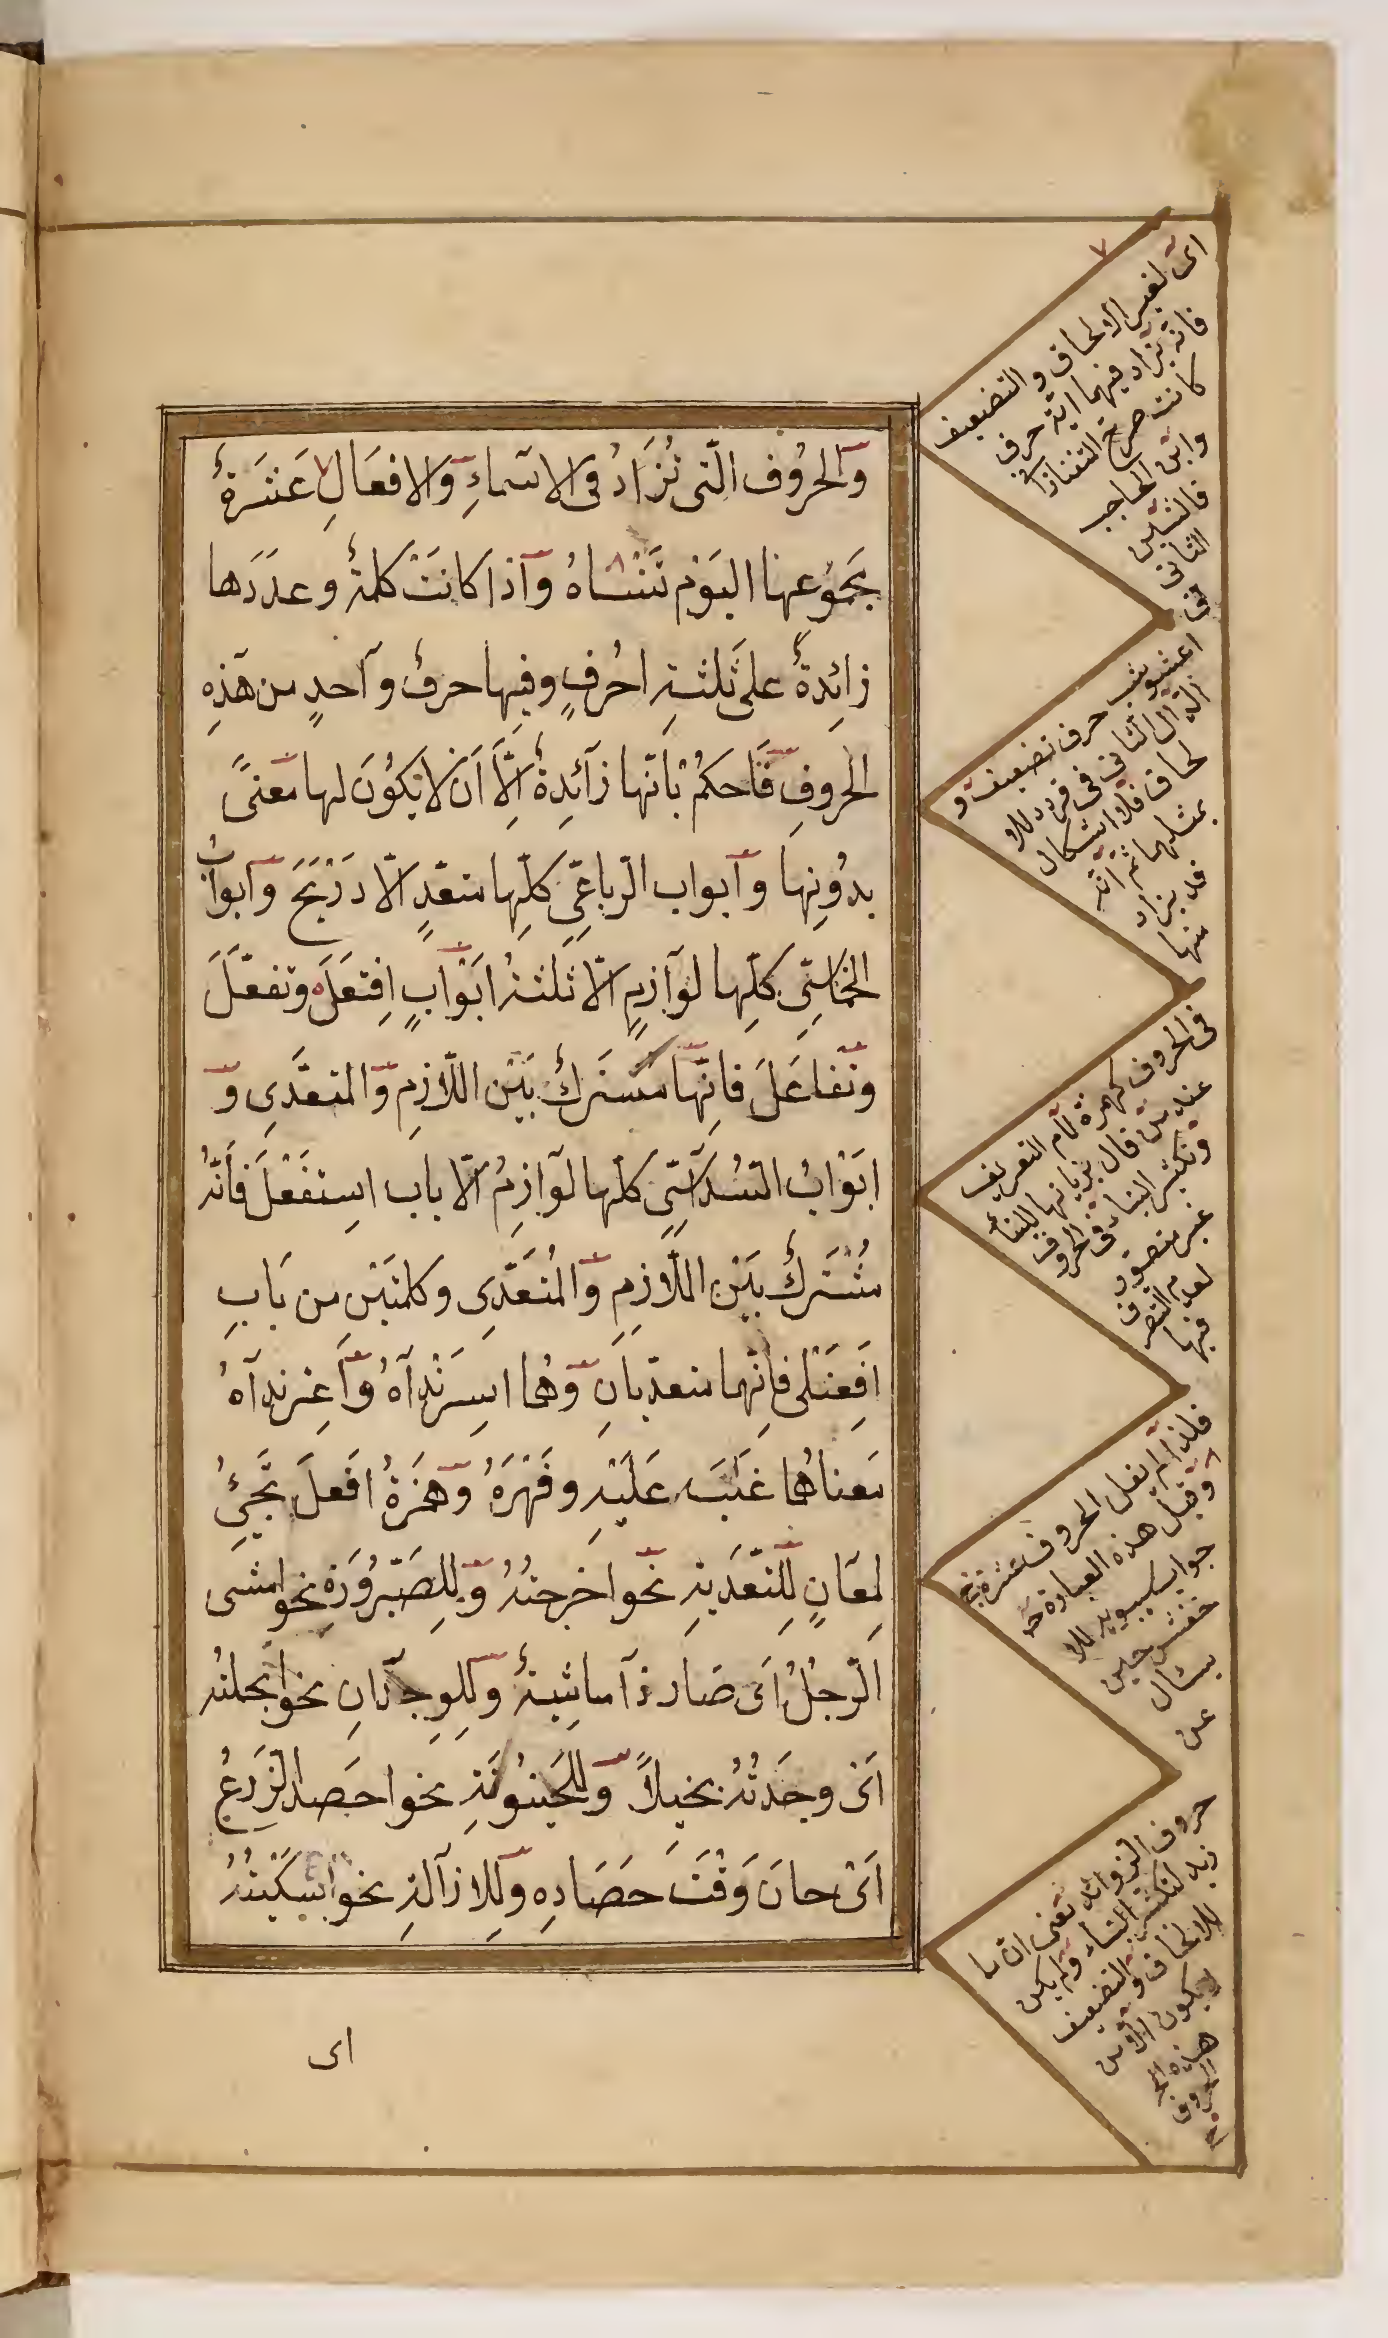 وَالحُرُوف الّتى تُزَادُ فى الاسَماءِ وَالافعَالِ عَشَرَةٌ
يَجْمُوعها اليَوْم تَنْسَاهُ وَاذا كانَتْ كلمةٌ وعدَدَها
زائِدةٌ على ثَلثةِ احُرفٍ وفيِها حرفٌ وآحدٍ من هَذِهِ
الحُروفِ فَاحكمُ بانّها زآئدِةٌ الَّا اَن لا يكوُنَ لها معنىً
بدوُنِها وآبواب الرّباعىِّ كلِّها متعدٍ الّا دَرْبَحَ وآبوابُ
الخمُاسىِّ كلِّها لوآزمٍ الّا ثلثةُ ابَوْابٍ اِفتَعَلَ وتفعّلَ
وتَفاعَلَ فانِّها مشترَكٌ بَيْن اللّازِمِ وَالمتعَدّىِ وَ
ابَوْابُ السُّدآسِّى كلّها لوآزِمُ الّا باب استفَعْلَ فاَنّهُ
مُشْتَرَكٌ بيَنْ اللّازِمِ وَالمُتعَدّىِ وكلمتَيْن من بَابِ
افَعِنَلْى فاِنّهما متعدّيانِ وَهُما اسِرَنْدآهُ وَاغِرندآهُ
مَعناهُما غَلَبَ عَلَيْهِ وقَهْرَهُ وَهمَزَةُ افَعلَ تَجِىُٔ
لمِعَانٍ لِلتّعَدَيةِ نحَوا خرجتهُ وَللِصَيّرُوَرَةِ نحَوا مشى
الرّجلُ اَى صَار ذآ ماشِيةٌ وَللِوِجدآنِ نحَوا بخلتهُ
اَىْ وجَدْتُهُ بخيلًا وَللِحَينُونَةِ نحوا حَصد الزَرعُ
اَىْ حانَ وَقْتَ حَصَادِهِ وَللِازآلةِ نحوا شكَيْتُهُ
اى
٧
اى لغير الالحاق و التضعيف
فانه يزاد فيهما اية حرف
كانت صرح التفتازانى
وابن الحاجب
فالشين
الثانى
فى
اعشوشب حرف تضعيف و
الدال الثانى فى قردد للا
لحاق فلا اشكال
بمثلهما ثم انه
قد يزاد
منها
فى الحروف كهمزة لام التعريف
عند من قال بزيادتها
وتكثير البناء فى الحروف
غير متصور
لعدم التصرف
فيها
فلذا لم يقل الحروف عشرة
٨ وقيل هذه العبارة
جواب سيبويه للا
خفش حين
يسئال
عن
حروف الزوائد تعنى ان ما
زيد لتكثير البناء ولم يكن
للالحاق والتضعيف
لا يكون الا من
هذه
الحروف